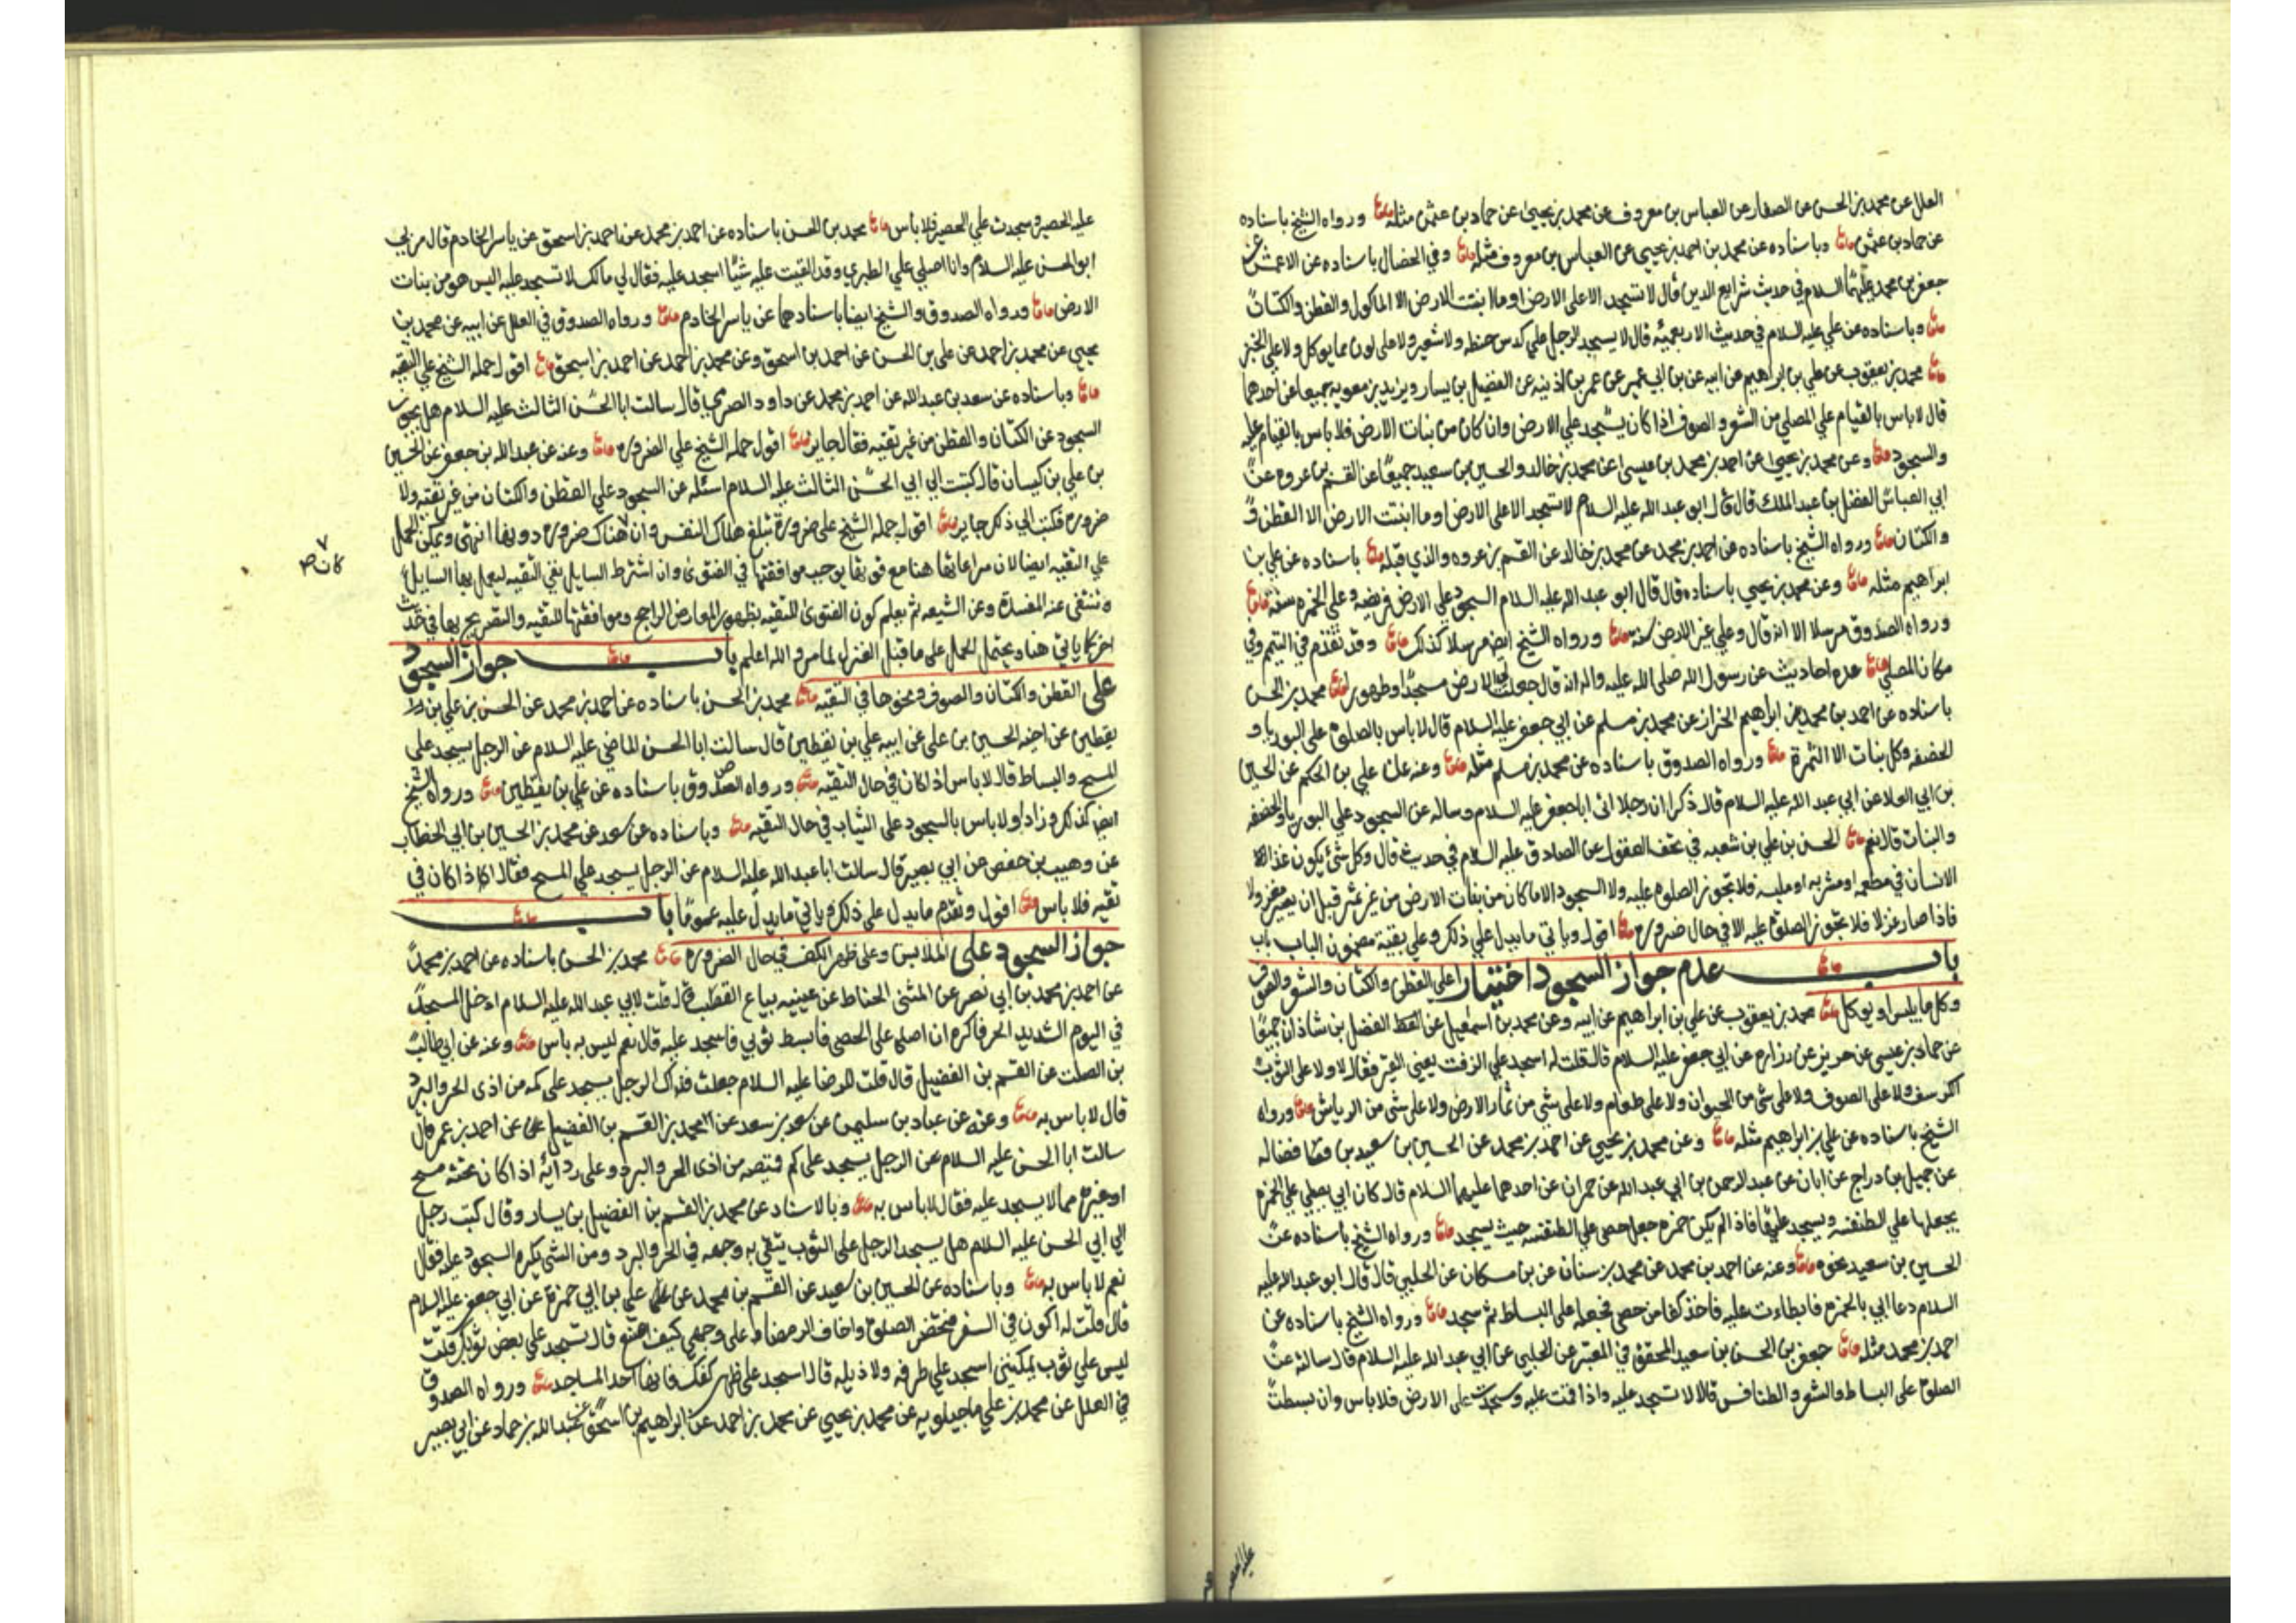 العلل عن محمد بن الحسن عن الصفار عن العباس بن معروف عن محمد بن يحيى عن حماد بن عثمن مثله ورواه الشيخ باسناده
عن حماد بن عثمن وباسناده عن محمد بن احمد بن يحيى عن العباس بن معروف مثله وفي الخصال باسناده عن الاعمش عن
جعفر بن محمد عليهما السلام في حديث شرايع الدين قال لا تسجد الا على الارض او ما انبتت الارض الا الماكول والقطن والكتان
وباسناده عن علي عليه السلام في حديث الاربعمئه قال لا يسجد الرجل علي كدس حنطه ولا شعير ولا على لون مما يوكل ولا على الخبز
محمد بن يعقوب عن علي بن ابراهيم عن ابيه عن بن ابي عمير عن عمر بن اذينه عن الفضيل بن يسار وبريد بن معويه جميعا عن احدهما
قال لا باس بالقيام علي المصلي من الشعر والصوف اذا كان يسجد علي الارض وان كان من نبات الارض فلا باس بالقيام عليه
والسجود وعن محمد بن يحيى عن احمد بن محمد بن عيسى عن محمد بن خالد والحسين بن سعيد جميعا عن القسم بن عروه عن
ابي العباس الفضل بن عبد الملك قال قال ابو عبد الله عليه السلام لا تسجد الا على الارض او ما انبتت الارض الا القطن
والكتان ورواه الشيخ باسناده عن احمد بن محمد عن محمد بن خالد عن القسم بن عروه والذي قبله باسناده عن علي بن
ابراهيم مثله وعن محمد بن يحيي باسناده قال قال ابو عبد الله عليه السلام السجود علي الارض فريضه وعلي الخمره سنه
ورواه الصدوق مرسلا الا انه قال وعلي غير الارض سنه ورواه الشيخ ايضا مرسلا كذلك وقد تقدم في التيمم وفي
مكان المصلي عده احاديث عن رسول الله صلى الله عليه واله انه قال جعلت لي الارض مسجدا وطهورا محمد بن الحسن
باسناده عن احمد بن محمد عن ابراهيم الخزاز عن محمد بن مسلم عن ابي جعفر عليه السلام قال لا باس بالصلوة على البوريا و
الخصفه وكل نبات الا الثمرة ورواه الصدوق باسناده عن محمد بن مسلم مثله وعنه عن علي بن الحكم عن الحسين
بن ابي العلا عن ابي عبد الله عليه السلام قال ذكر ان رجلا اتى ابا جعفر عليه السلام وساله عن السجود علي البوريا والخصفه
والنبات قال نعم الحسن بن علي بن شعبه في تحف العقول عن الصادق عليه السلام في حديث قال وكل شئ يكون غذا
الانسان في مطعمه او مشربه او ملبسه فلا تجوز الصلوه عليه ولا السجود الا ما كان من نبات الارض من غير ثمر قبل ان يصير مغزولا
فاذا صار غزلا فلا تجوز الصلوة عليه الا في حال ضروره اقول وياتي ما يدل علي ذلك وعلي بقية مضمون الباب
باب عدم جواز السجود اختيارا على القطن والكتان والشعر والصوف
وكل ما يلبس او يوكل محمد بن يعقوب عن علي بن ابراهيم عن ابيه وعن محمد بن اسمعيل عن الفضل بن شاذان جميعا
عن حماد بن عيسى عن حريز عن زراره عن ابي جعفر عليه السلام قال قلت له اسجد علي الزفت يعني القير فقال لا ولا على الثوب
الكرسف ولا على الصوف ولا على شئ من الحيوان ولا على طعام ولا على شئ من ثمار الارض ولا على شئ من الرياش ورواه
الشيخ باسناده عن علي بن ابراهيم مثله وعن محمد بن يحيي عن احمد بن محمد عن الحسين بن سعيد بن فضاله
عن جميل بن دراج عن ابان عن عبد الرحمن بن ابي عبد الله عن حمران عن احدهما عليهما السلام قال كان ابي يصلي علي الخمره
يجعلها علي الطنفسه ويسجد عليها فاذا لم يكن خمره جعل حصى علي الطنفسه حيث يسجد ورواه الشيخ باسناده عن
الحسين بن سعيد نحوه وعنه عن احمد بن محمد عن محمد بن سنان عن بن مسكان عن الحلبي قال قال ابو عبد الله عليه
السلام دعا ابي بالخمره فابطاءت عليه فاخذ كفا من حصى فجعله على البساط ثم سجد ورواه الشيخ باسناده عن
احمد بن محمد مثله جعفر بن الحسن بن سعيد المحقق في المعتبر عن الحلبي عن ابي عبد الله عليه السلام قال سالته عن
الصلوة على البساط والشعر والطنافس قال لا تسجد عليه واذا قمت عليه وسجدت على الارض فلا باس وان بسطت
عليه الحصير وسجدت علي الحصير فلا باس محمد بن الحسن باسناده عن احمد بن محمد عن احمد بن اسحق عن ياسر الخادم قال مر بي
ابو الحسن عليه السلام وانا اصلي علي الطبري وقد القيت عليه شيئا اسجد عليه فقال لي مالك لا تسجد عليه اليس هو من نبات
الارض ورواه الصدوق والشيخ ايضا باسنادهما عن ياسر الخادم ورواه الصدوق في العلل عن ابيه عن محمد بن
يحيي عن محمد بن احمد عن علي بن الحسن عن احمد بن اسحق وعن محمد بن احمد عن احمد بن اسحق اقول حمله الشيخ علي التقيه
وباسناده عن سعد بن عبد الله عن احمد بن محمد عن داود الصرمي قال سالت ابا الحسن الثالث عليه السلام هل يجوز
السجود عن الكتان والقطن من غير تقيه فقال جايز اقول حمله الشيخ علي الضروره وعنه عن عبد الله بن جعفر عن الحسين
بن علي بن كيسان قال كتبت الي ابي الحسن الثالث عليه السلام اسئله عن السجود علي القطن والكتان من غير تقيه ولا
ضروره فكتب الي ذلك جايز اقول حمله الشيخ على ضرورة تبلغ هلاك النفس وان هناك ضروره دونها انتهى ويمكن الحمل
كان ص
علي التقيه ايضا لان مراعاتها هنا مع فوتها يوجب موافقتها في الفتوى وان اشترط السايل نفي التقيه ليعمل بها السايل
وتنتفى عنه المفسدة وعن الشيعه ثم يعلم كون الفتوى للتقيه بظهور المعارض الراجح وموافقتها للتقيه والتصريح بها في حديث
اخر كما ياتي هنا ويحتمل الحمل على ما قبل الغزل لما مر والله اعلم باب جواز السجود
على القطن والكتان والصوف ونحوها في التقيه محمد بن الحسن باسناده عن احمد بن محمد عن الحسن بن علي بن
يقطين عن اخيه الحسين بن علي عن ابيه علي بن يقطين قال سالت ابا الحسن الماضي عليه السلام عن الرجل يسجد على
المسح والبساط قال لا باس اذا كان في حال التقيه ورواه الصدوق باسناده عن علي بن يقطين ورواه الشيخ
ايضا كذلك وزاد ولا باس بالسجود على الثياب في حال التقيه وباسناده عن سعد عن محمد بن الحسين بن ابي الخطاب
عن وهيب بن حفص عن ابي بصير قال سالت ابا عبد الله عليه السلام عن الرجل يسجد علي المسح فقال اذا كان في
تقيه فلا باس اقول وتقدم ما يدل على ذلك وياتي ما يدل عليه عموما باب
جواز السجود على الملابس وعلى ظهر الكف في حال الضروره محمد بن الحسن باسناده عن احمد بن محمد
عن احمد بن محمد بن ابي نصر عن المثنى الحناط عن عيينه بياع القصب قال قلت لابي عبد الله عليه السلام ادخل المسجد
في اليوم الشديد الحر فاكره ان اصلي على الحصى فابسط ثوبي فاسجد عليه قال نعم ليس به باس وعنه عن ابي طالب
بن الصلت عن القسم بن الفضيل قال قلت للرضا عليه السلام جعلت فداك الرجل يسجد على كمه من اذى الحر والبرد
قال لا باس به وعنه عن عباد بن سليمن عن سعد بن سعد عن محمد بن القسم بن الفضيل عن احمد بن عمر قال
سالت ابا الحسن عليه السلام عن الرجل يسجد على كم قميصه من اذى الحر والبرد وعلى ردائه اذا كان تحته مسح
او غيره مما لا يسجد عليه فقال لا باس به وبالاسناد عن محمد بن القسم بن الفضيل بن يسار وقال كتب رجل
الي ابي الحسن عليه السلام هل يسجد الرجل على الثوب يتقي به وجهه في الحر والبرد ومن الشئ يكره السجود عليه فقال
نعم لا باس به وباسناده عن الحسين بن سعيد عن القسم بن محمد عن علي بن ابي حمزة عن ابي جعفر عليه السلام
قال قلت له اكون في السفر فتحضر الصلوة واخاف الرمضاء على وجهي كيف اصنع قال تسجد علي بعض ثوبك قلت
ليس علي ثوب يمكنني اسجد علي طرفه ولا ذيله قال اسجد على ظهر كفك فانها احد المساجد ورواه الصدوق
في العلل عن محمد بن علي ماجيلويه عن محمد بن يحيي عن محمد بن احمد عن ابراهيم بن اسحق عن عبد الله بن حماد عن ابي بصير